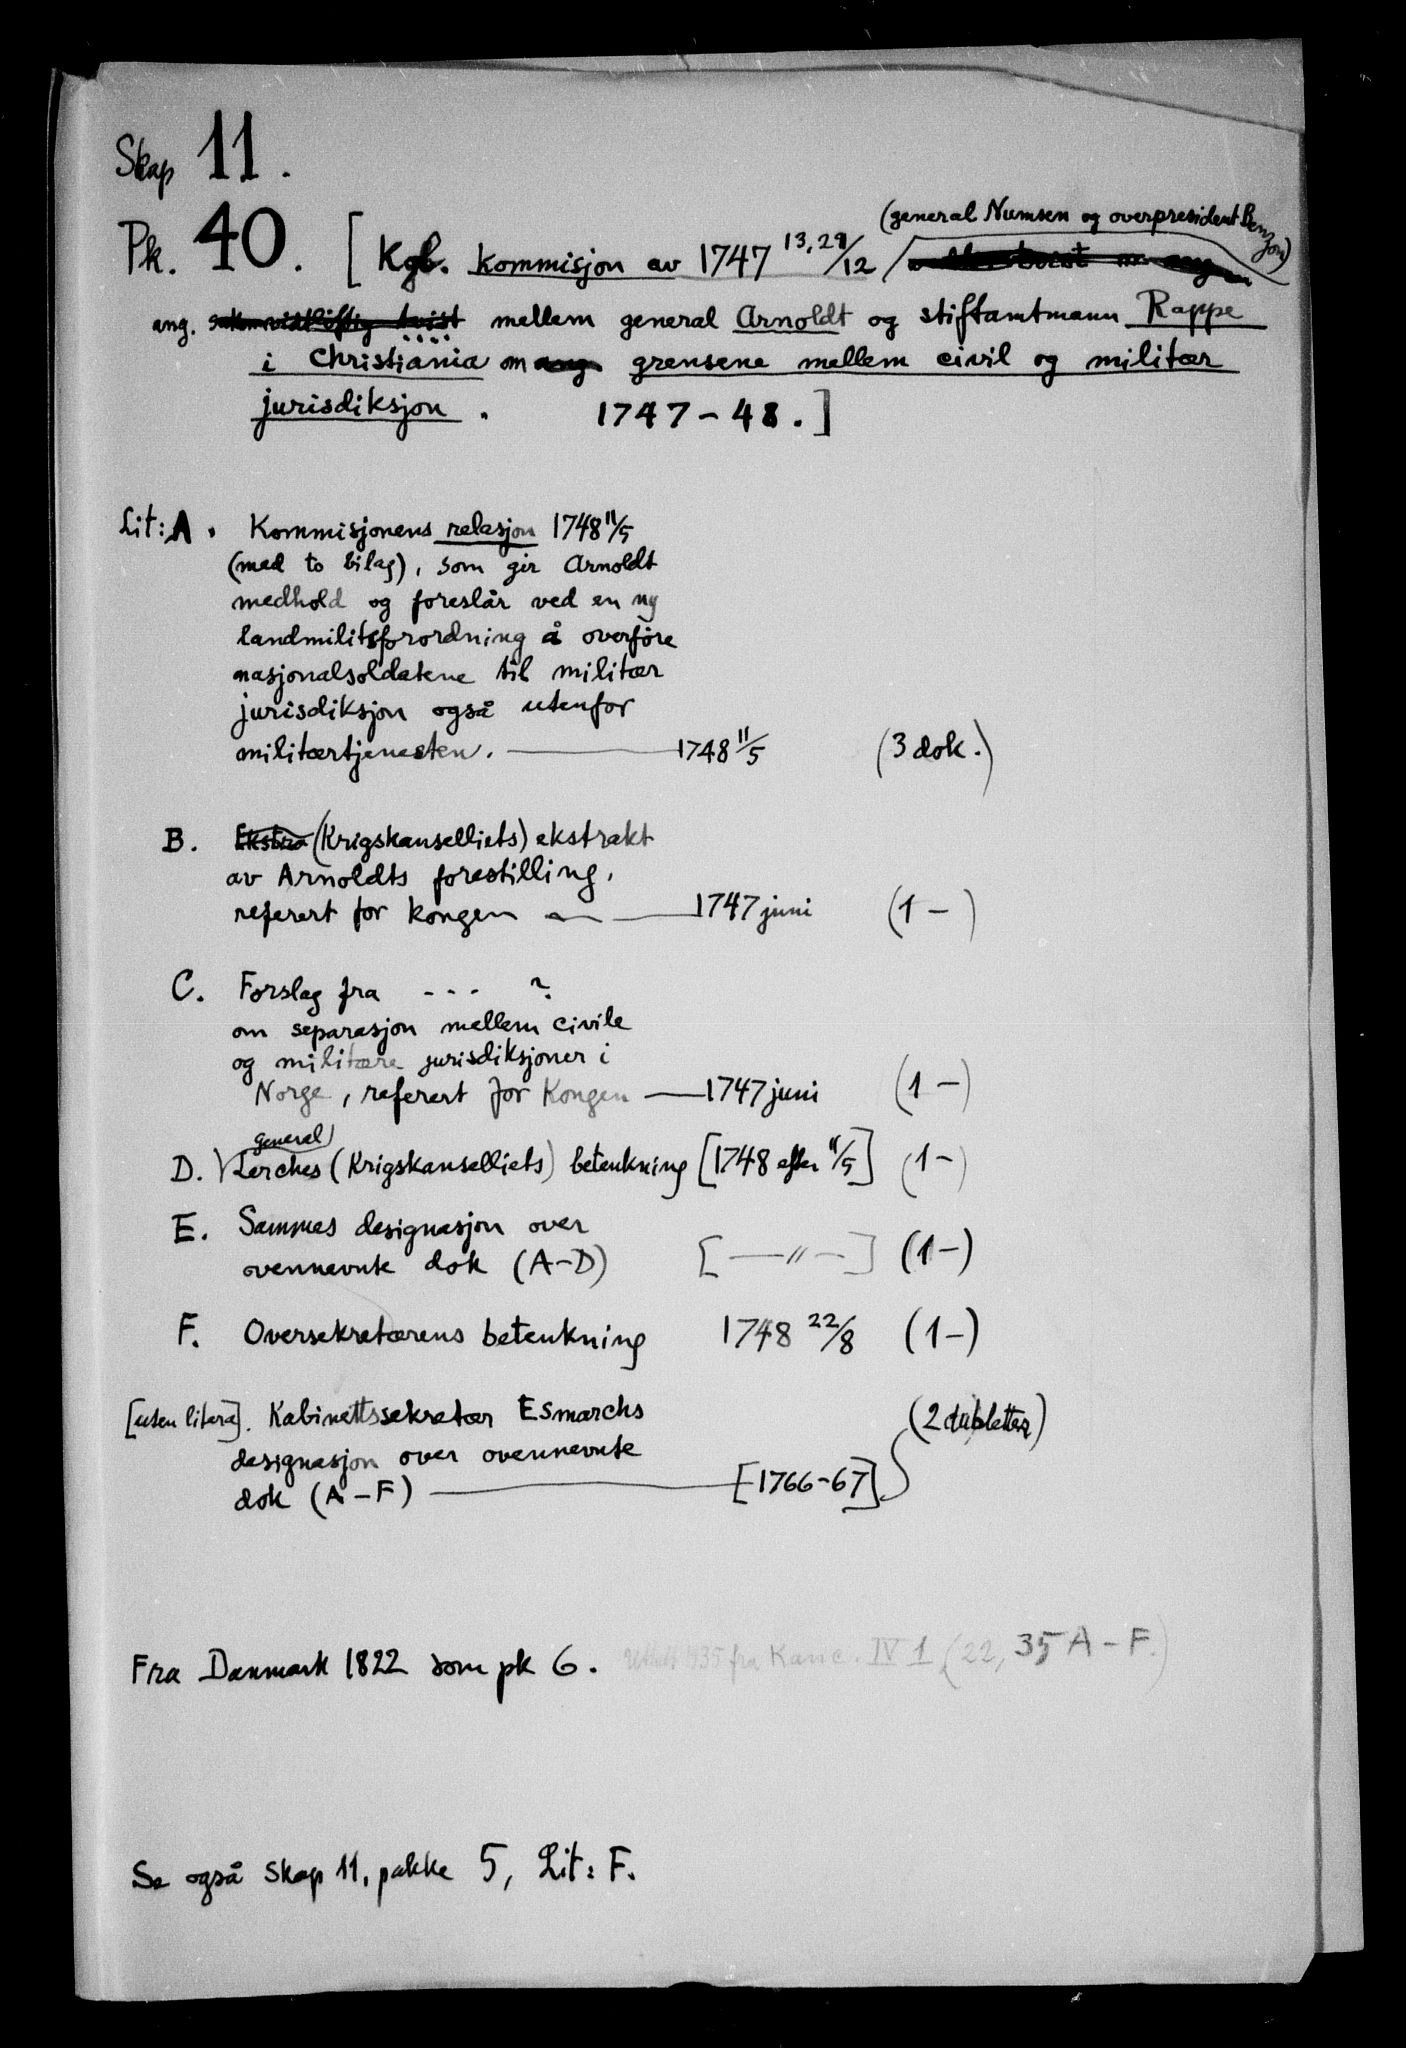 Skap 11.
(general Numsen og overpresident Benzon)
Pk. 40. [Kgl. kommisjon av 1747 13,29/12
ang. mellem general Arnoldt og stiftamtmann Rappe
i Christiania om grensene mellem civil og militær
jurisdiksjon. 1747-48.]
Lit: A. Kommisjonens relasjon 1748 11/5
(med to bilag), som gir Arnoldt
medhold og foreslår ved en ny
landmilitsforordning å overføre
nasjonalsoldatene til militær
jurisdiksjon også utenfor
militærtjenesten. — 1748 11/5 (3 dok.)
B. Ekstra (Krigskanselliets) ekstrakt
av Arnoldts forestilling,
referert for kongen — 1747 juni (1 -)
C. Forslag fra --- ?
om separasjon mellem civile
og militære jurisdiksjoner i
Norge, referert for Kongen — 1747 juni (1 -)
general
D. Lerches (Krigskanselliets) betenkning [1748 efter 11/5] (1 -)
E. Sammes designasjon over
ovennevnte dok (A-D) [— " —] (1 -)
F. Oversekretærens betenkning 1748 22/8 (1 -)
[uten litera]. Kabinettssekretær Esmarchs (2 dubletter)
designasjon over ovennevnte
dok (A-F) — [1766-67]
Fra Danmark 1822 som pk 6. 1935 fra Kanc. IV 1 (22, 35 A-F.)
Se også Skap 11, pakke 5, Lit: F.